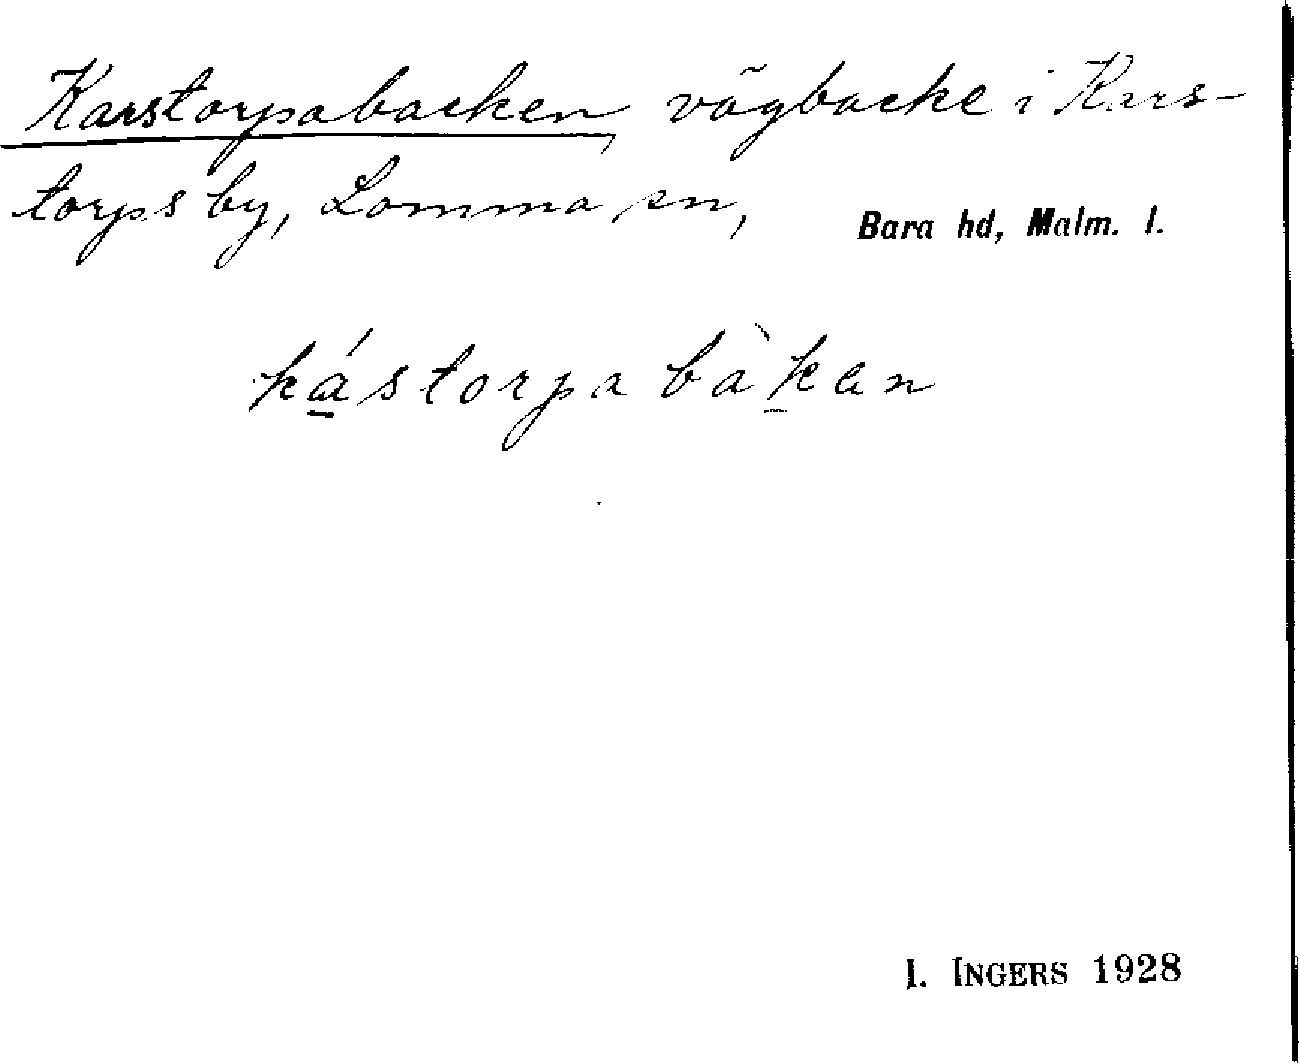 Karstorpabacken, vägbacke i Kars-
torps by, Lomma sn, Bara hd, Malm. l.
kástorpabàkan
I. INGERS 1928